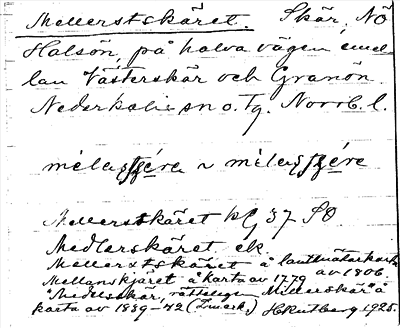 Mellerstskäret. Skär, NÖ
Halsön, på halva vägen emel-
lan Västerskär och Granön.
Nederkalix sn o. tg. Norrb. l.
Mellerstskäret 37 SO
Medlerskäret ek.
Mellerstskäret å lantmäterikarta
av 1806.
Mellanskjäret å karta av 1779
Medelsskär, rätteligen Mellerskär å
karta av 1839-42 H Rutberg 1925.